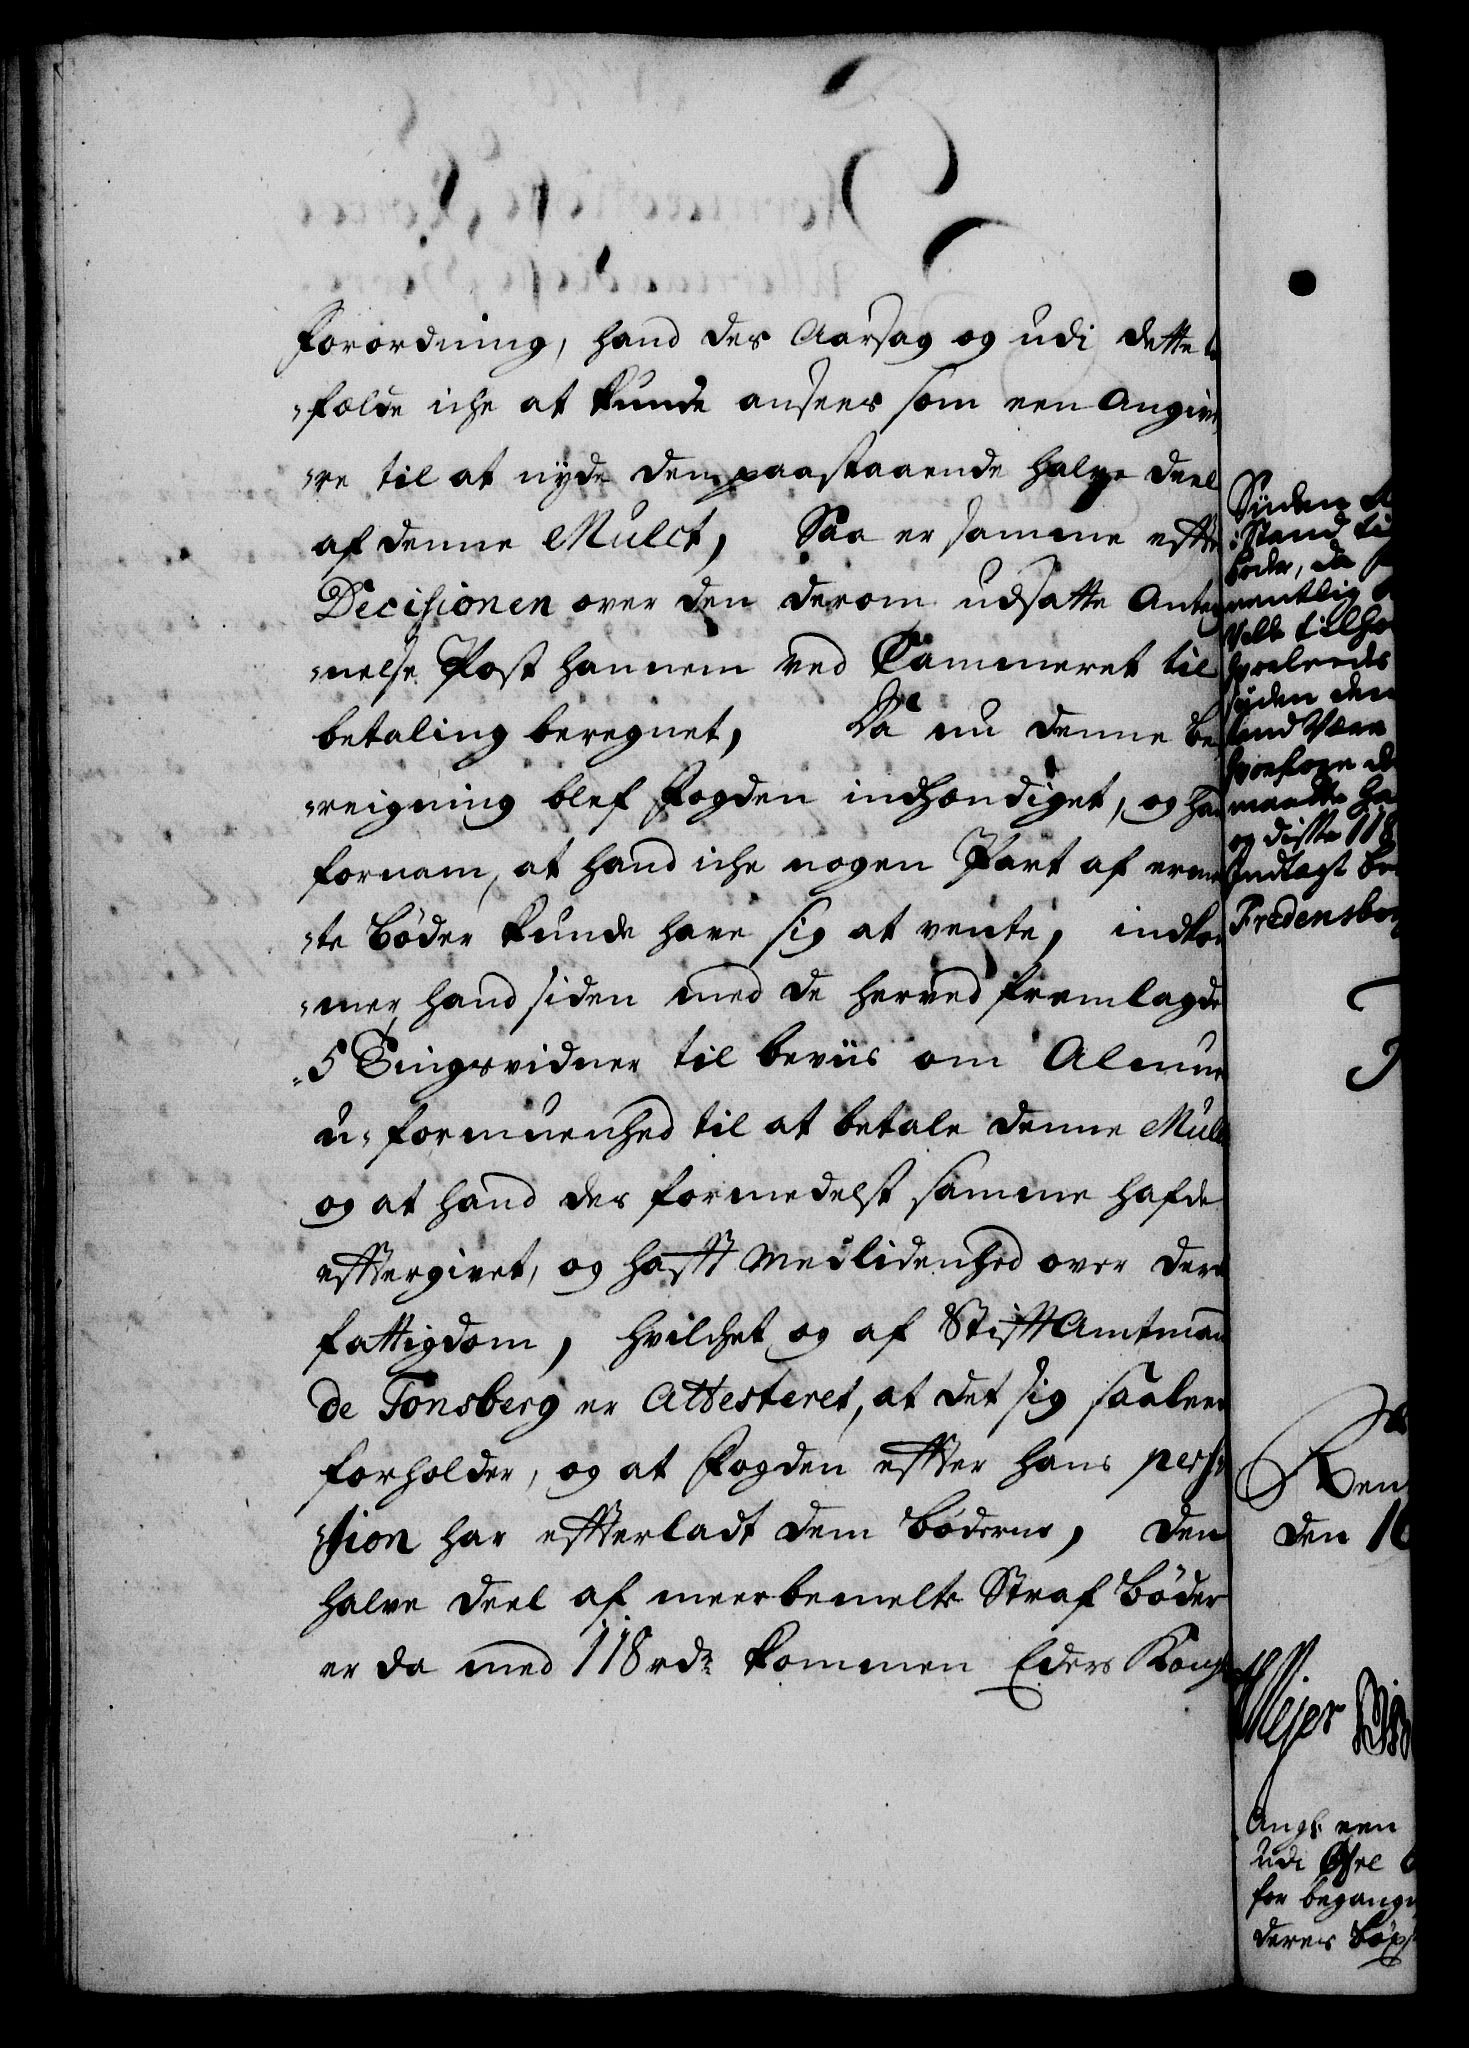 forordning, hand der Aarsag og udi dette
„fælde iche at kunde ansees som een Angive
„re til at nyde den paastaaende halve deel
af denne Mulct, Saa er samme effter
Decisionen over den derom udsatte Anteg
„nelse Post hannem ved Cammeret til
betaling beregnet, Da nu denne be
„reigning blef Fogden indhændiget, og hand
fornam, at hand iche nogen Part af erm
„te Bøder kunde have sig at vente, indkom
„mer hand siden med de herved fremlagde
5 Tingsvidner til beviis om Almue
u„formuenhed til at betale denne Mulct
og at hand der formedelst samme hafde
efftergivet, og hafft Medlidenhed over der
fattigdom, hvilchet og af Stifft Amtmand
de Tonsberg er Attesteret, at det sig saalee
forholder, og at Fogden effter hans per
„sion har effterladt dem bøderne, den
halve deel af meerbemelte Straf Bøder
er da med 118 rdr kommen Eders Kongl
Siiden
Stand til
boder, da
ventlig
tilho
hvorleeds
siiden den
hvorfore
maatte ha
og disse 118
Indtægt
Fredensborg
Ren
den 16
Mejer
Angl: een
udi
for begang
deres